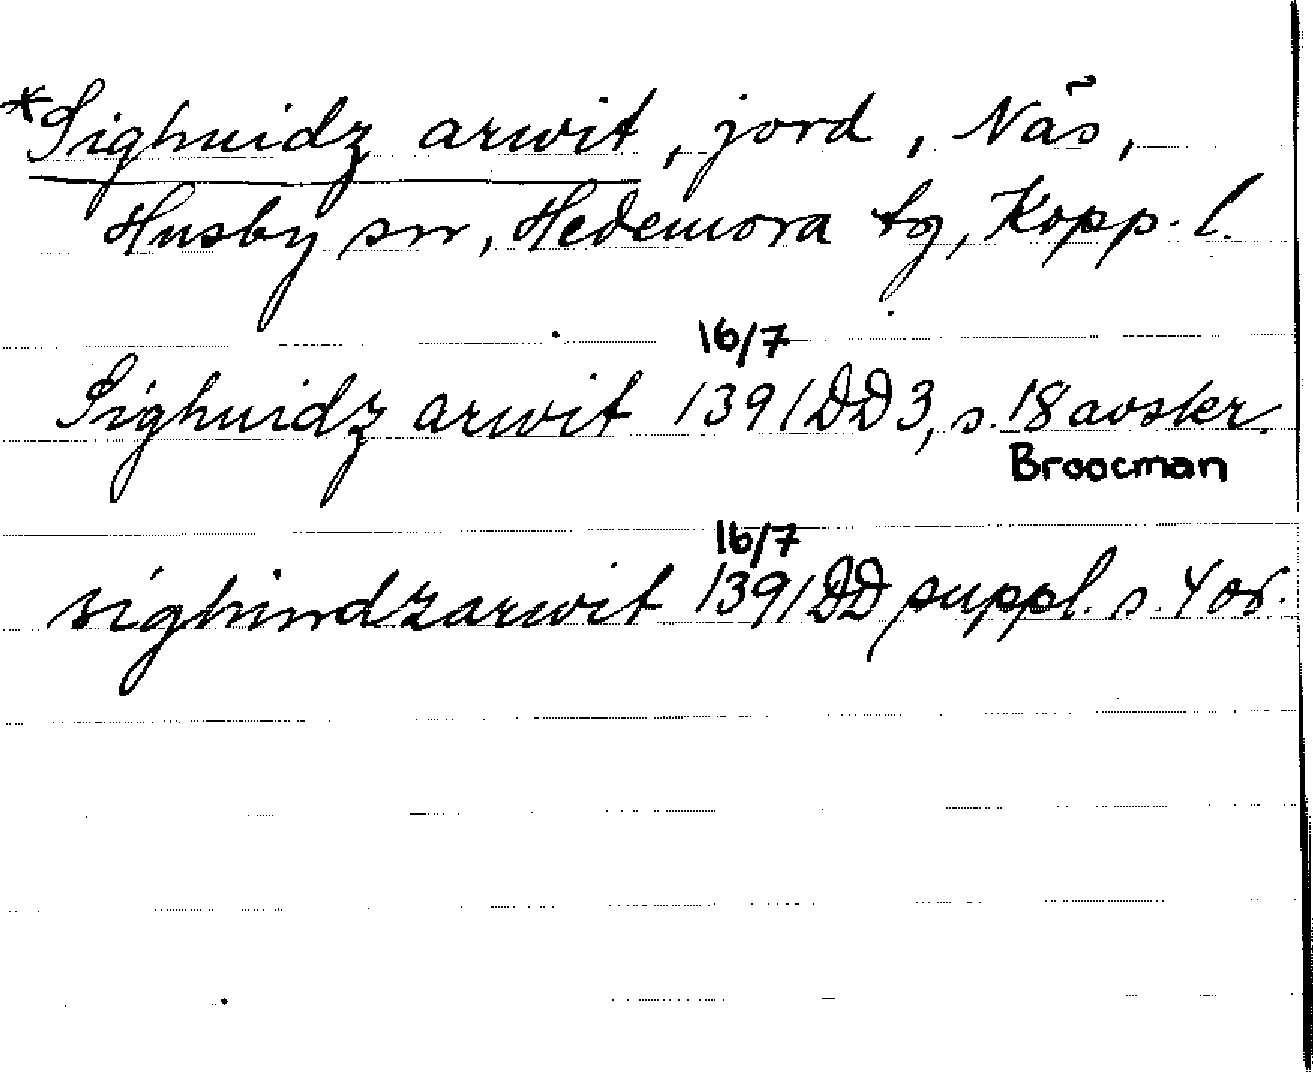 *Sighuidz arwit, jord, Näs,
Husby sn, Hedemora tg, Kopp. l.
16/7
Sighuidz arwit 1391 DD 3, s. 18 avskr.
Broocman
16/7
sighindzarwit 1391 DD suppl. s. 4 or.